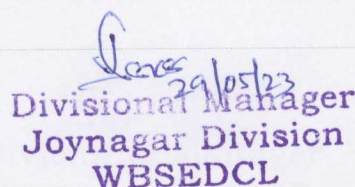 29/05/23
Divisional Manager
Joynagar Division
WBSEDCL